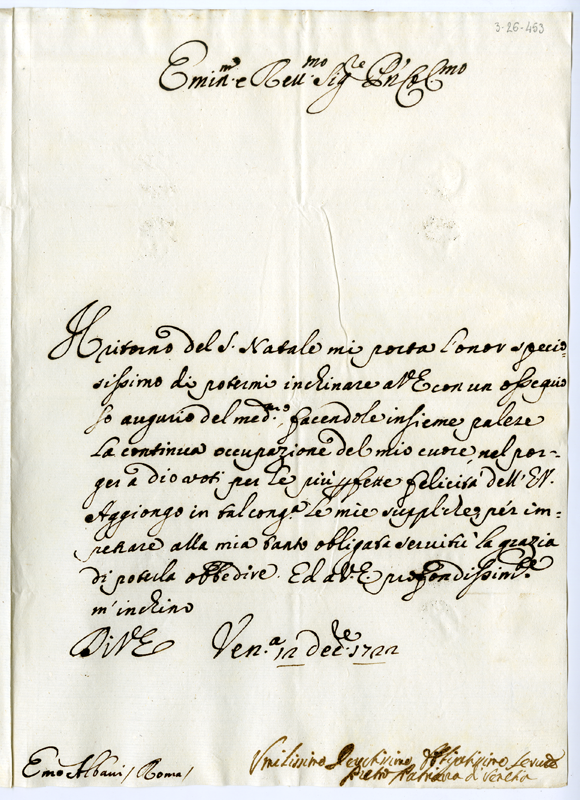 3-26-453
Emin.mo e Reu.mo Sig.re Pn Col.mo
Il ritorno del S. Natale mi porta l'onor specio-
sissimo di potermi inchinare a V.E. con un ossequio
so augurio del med.mo, facendole insieme palese
la continua occupazione del mio cuore, nel por-
ger a Dio voti per le più pfette felicità dell' E.V.
Aggiongo in tal cong.a le mie suppliche per im-
petrare alla mia tanto obligata servitù la grazia
di poterla obbedire. Ed a V.E. profondissim.te
m'inchino
Di V.E. Ven.a 12 Dec.re 1722
Emo Albani / Roma /
Vmilissimo Deuotissimo Obligatissimo Seruitore
Pietro Patriarca di Venetia